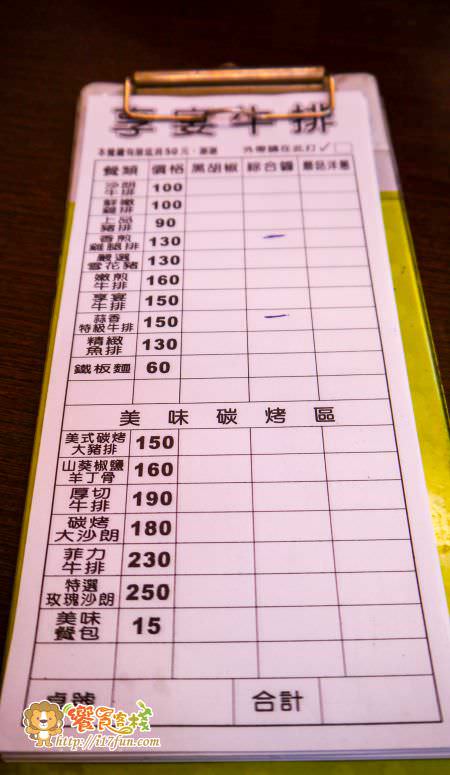 享宴牛排
本餐廳每張低消50元,謝謝 外帶請在此打✓□
餐類 價格 黑胡椒 綜合醬 蘑菇洋蔥
沙朗牛排 100
鮮嫩雞排 100
上品豬排 90
香煎雞腿排 130
嚴選雪花豬 130
嫩煎牛排 160
享宴牛排 150
蒜香特級牛排 150
精緻魚排 130
鐵板麵 60
美味碳烤區
美式碳烤大豬排 150
山葵椒鹽羊丁骨 160
厚切牛排 190
碳烤大沙朗 180
菲力牛排 230
特選玫瑰沙朗 250
美味餐包 15
桌號 合計
饗食客棧
http://i17fun.com